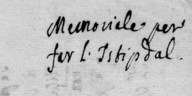 Memoriale per
far l. Istipdal.